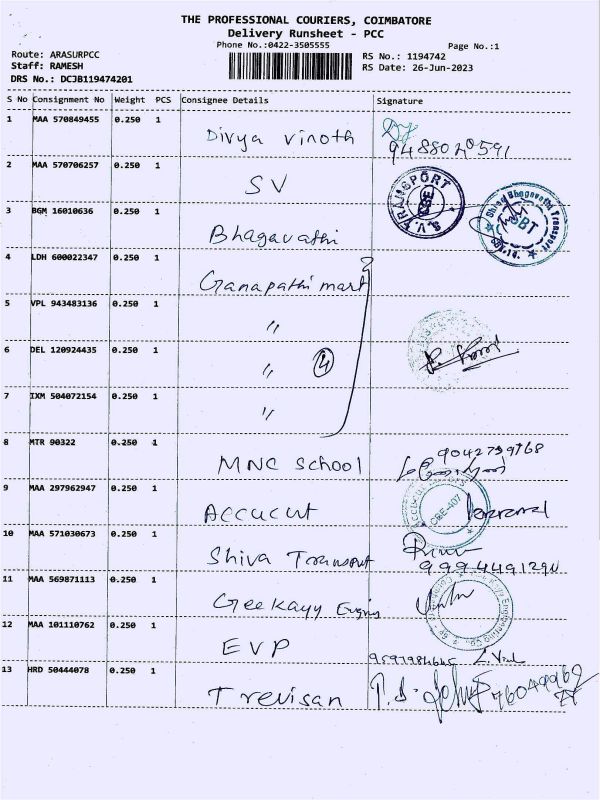 THE PROFESSIONAL COURIERS, COIMBATORE
Delivery Runsheet - PCC
Phone No.:0422-3505555 Page No.:1
Route: ARASURPCC RS No.: 1194742
Staff: RAMESH RS Date: 26-Jun-2023
DRS No.: DCJB119474201
S No Consignment No Weight PCS Consignee Details Signature
1 MAA 570849455 0.250 1 Divya vinoth
2 MAA 570706257 0.250 1 SV S.V.TRANSPORT
3 BGM 16010636 0.250 1 Bhagavathi Bhagavathi Transport SBT
4 LDH 600022347 0.250 1 Ganapathi mart
5 VPL 943483136 0.250 1 "
6 DEL 120924435 0.250 1 " 4
7 IXM 504072154 0.250 1 "
8 MTR 90322 0.250 1 MNC School
9 MAA 297962947 0.250 1 Accucut CBE-407
10 MAA 571030673 0.250 1 Shiva Transport
11 MAA 569871113 0.250 1 Geekayy
12 MAA 101110762 0.250 1 EVP
13 HRD 50444078 0.250 1 Trevisan